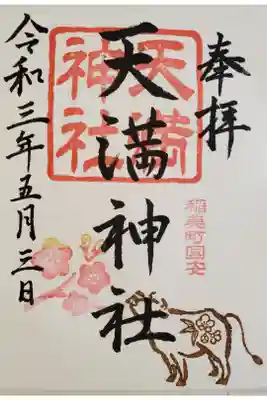 奉拝
天満神社
天満
神社
稲美町国安
令和三年五月三日